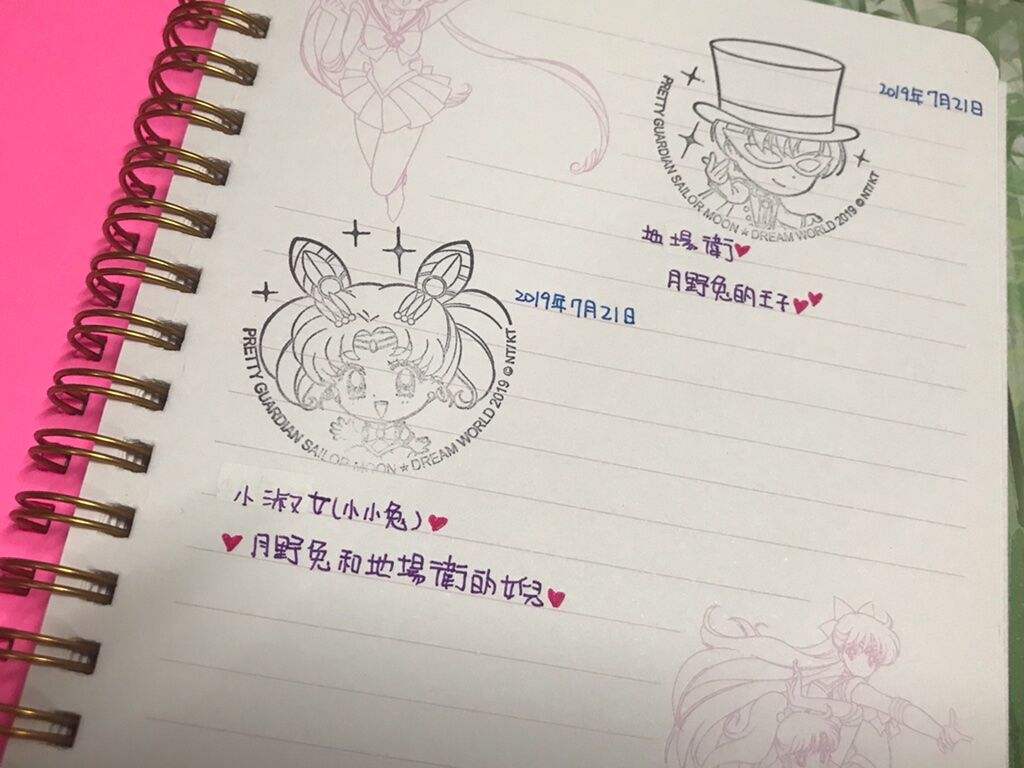 2019年7月21日
PRETTY GUARDIAN SAILOR MOON★DREAM WORLD 2019 ©NT/KT
地場衛♥
月野兔的王子♥♥
2019年7月21日
PRETTY GUARDIAN SAILOR MOON★DREAM WORLD 2019 ©NT/KT
小淑女(小小兔)♥
♥月野兔和地場衛的女兒♥